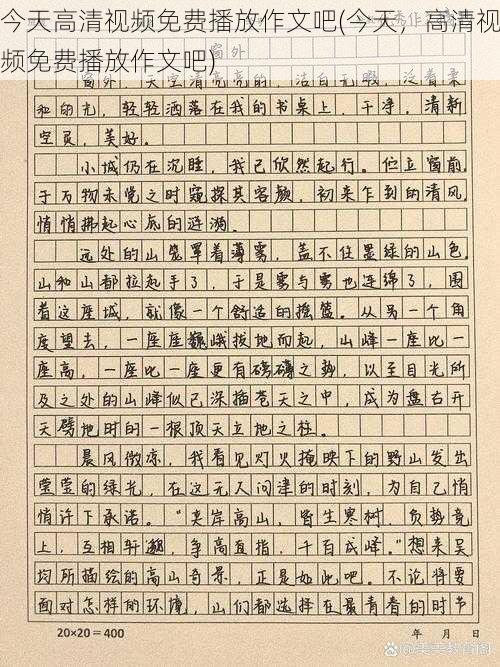 今天高清视频免费播放作文吧(今天，高清视
频免费播放作文吧)
窗外
窗外，天空清亮亮的，洁白无暇，泛着柔
和的光，轻轻洒落在我的书桌上，干净，清新
空灵，美好。
小城仍在沉睡，我已欣然起行。伫立窗前
于万物未觉之时窥探其容颜，初来乍到的清风
悄悄拂起心底的涟漪。
远处的山笼罩着薄雾，盖不住墨绿的山色
山和山都拉起手了，于是雾与雾也连绵了，围
着这座城，就像一个舒适的摇篮。从另一个角
度望去，一座座巍峨拔地而起，山峰一座比一
座高，一座比一座更有磅礴之势，以至目光所
及之处的山峰似已深插苍天之中，成为盘古开
天劈地时的一根顶天立地之柱。
晨风微凉，我看见灯火掩映下的野山发出
莹莹的绿光，在这无人问津的时刻，为自己悄
悄许下承诺。“夹岸高山，皆生寒树，负势竞
上，互相轩邈，争高直指，千百成峰。”想来吴
均所描绘的高山奇景，正是如此吧。不论将要
面对怎样的环境，山们都选择在最青春的时节
20×20=400
年 月 日